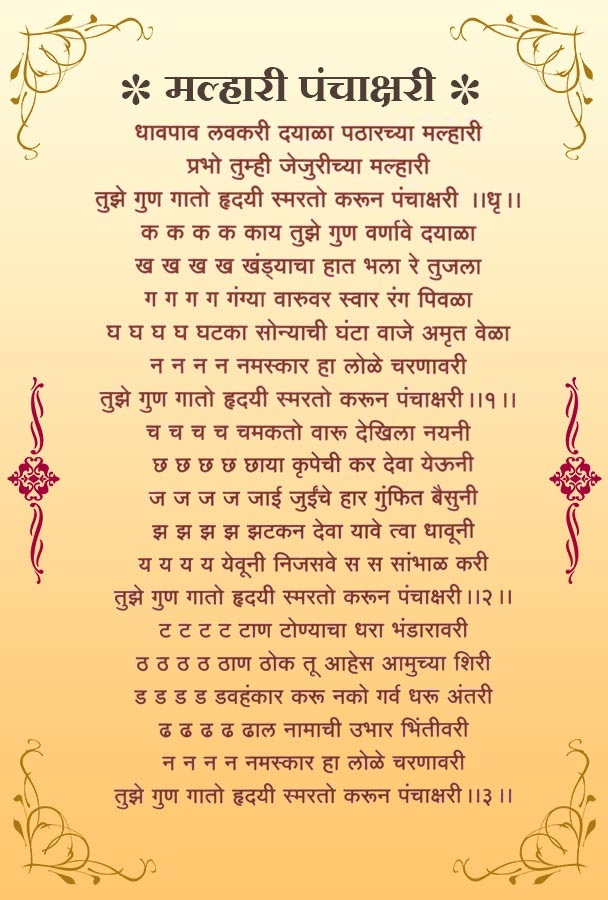 * मल्हारी पंचाक्षरी *
धावपाव लवकरी दयाळा पठारच्या मल्हारी
प्रभो तुम्ही जेजुरीच्या मल्हारी
तुझे गुण गातो हृदयी स्मरतो करून पंचाक्षरी ।।धृ।।
क क क क काय तुझे गुण वर्णावे दयाळा
ख ख ख ख खंड्याचा हात भला रे तुजला
ग ग ग ग गंग्या वारुवर स्वार रंग पिवळा
घ घ घ घ घटका सोन्याची घंटा वाजे अमृत वेळा
न न न न नमस्कार हा लोळे चरणावरी
तुझे गुण गातो हृदयी स्मरतो करून पंचाक्षरी।।१।।
च च च च चमकतो वारू देखिला नयनी
छ छ छ छ छाया कृपेची कर देवा येऊनी
ज ज ज ज जाई जुईंचे हार गुंफित बैसुनी
झ झ झ झ झटकन देवा यावे त्वा धावूनी
य य य य येवूनी निजसवे स स सांभाळ करी
तुझे गुण गातो हृदयी स्मरतो करून पंचाक्षरी।।२।।
ट ट ट ट टाण टोण्याचा धरा भंडारावरी
ठ ठ ठ ठ ठाण ठोक तू आहेस आमुच्या शिरी
ड ड ड ड डवहंकार करू नको गर्व धरू अंतरी
ढ ढ ढ ढ ढाल नामाची उभार भिंतीवरी
न न न न नमस्कार हा लोळे चरणावरी
तुझे गुण गातो हृदयी स्मरतो करून पंचाक्षरी।।३।।